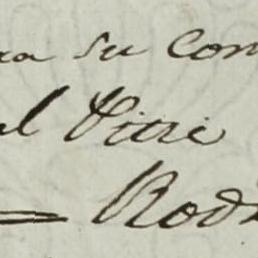 ra su con
el
Rod